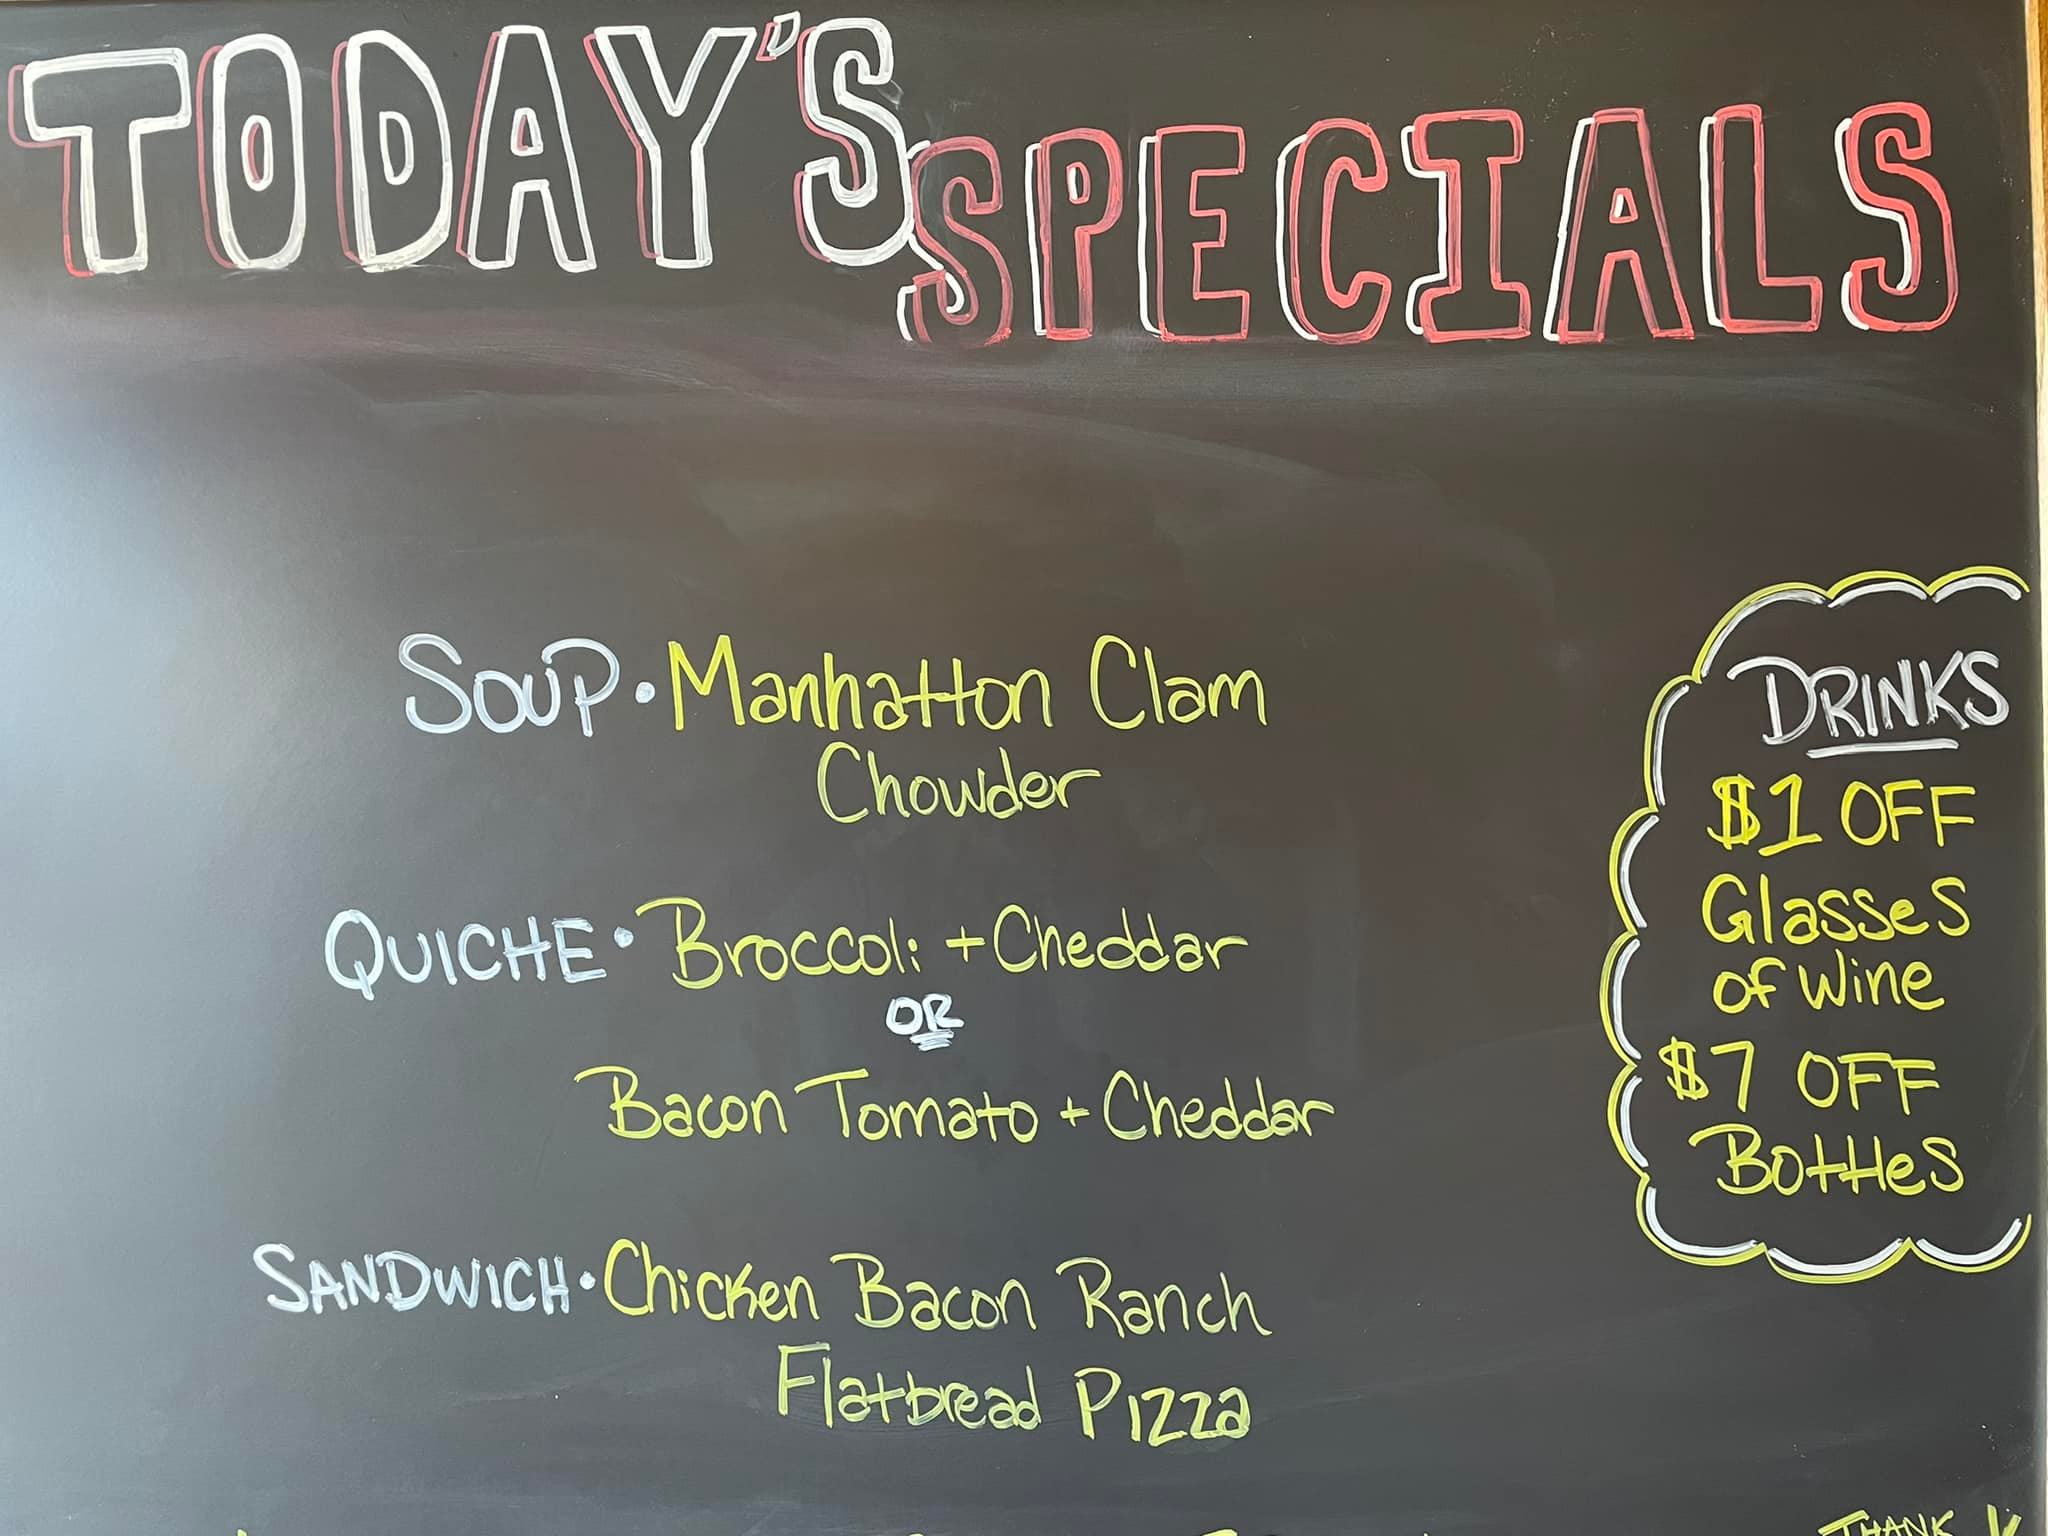 TODAY'S
SPECIALS
SOUP • Manhatton Clam
Chowder
QUICHE • Broccoli + Cheddar
OR
Bacon Tomato + Cheddar
SANDWICH • Chicken Bacon Ranch
Flatbread Pizza
DRINKS
$1 OFF
Glasses
of Wine
$7 OFF
Bottles
THANK